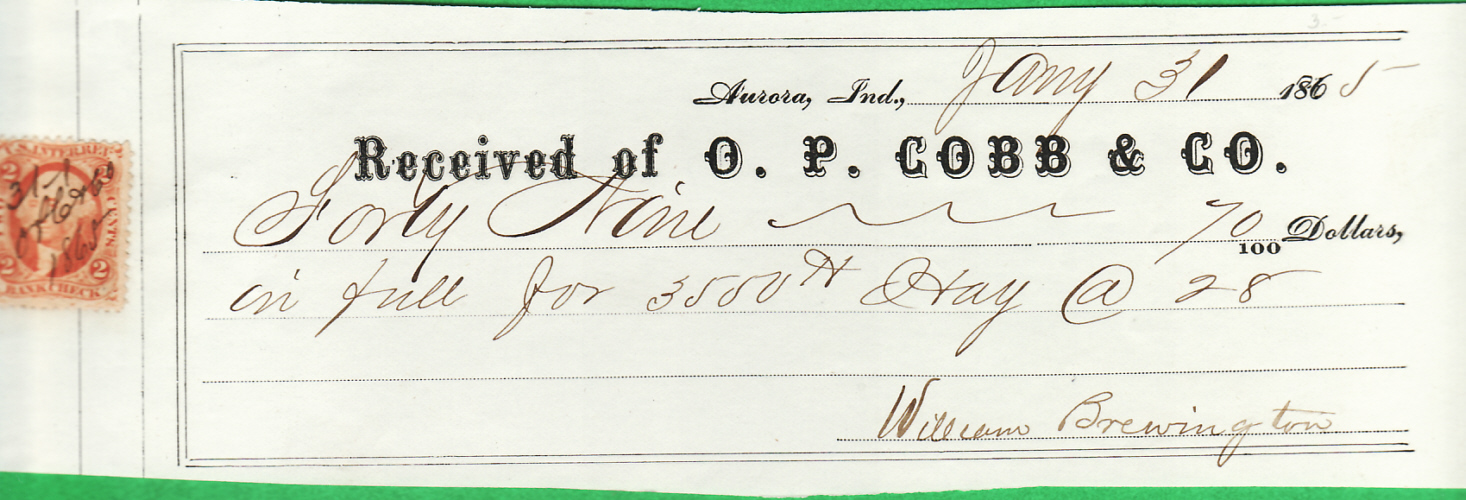 3-
Aurora, Ind., Jany 31 1865
Received of O. P. COBB & CO.
Forty Nine 70/100 Dollars,
in full for 3550 # Hay @ 28
William Brewington
U.S. INTER. REV.
2 2
CENTS
31-1
1865
2 2
BANK CHECK